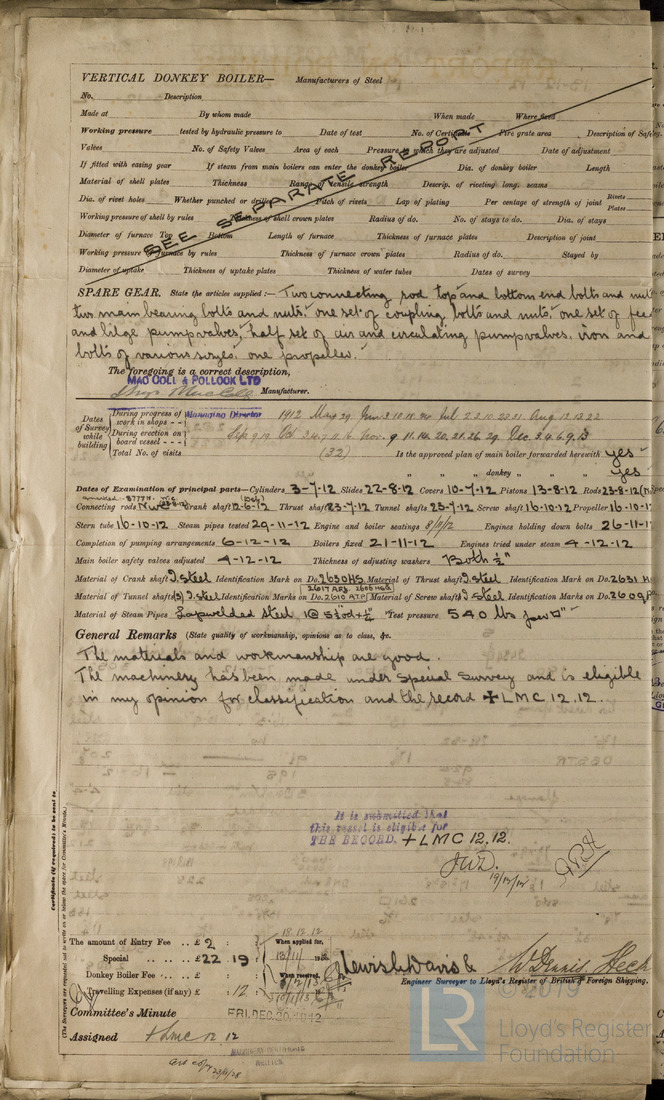 VERTICAL DONKEY BOILER— Manufacturers of Steel
No. Description
Made at By whom made When made Where fixed
Working pressure tested by hydraulic pressure to Date of test No. of Certificate Fire grate area Description of Safety
Valves No. of Safety Valves Area of each Pressure to which they are adjusted Date of adjustment
If fitted with easing gear If steam from main boilers can enter the donkey boiler Dia. of donkey boiler Length
Material of shell plates Thickness Range of tensile strength Descrip. of riveting long. seams
Dia. of rivet holes Whether punched or drilled Pitch of rivets Lap of plating Per centage of strength of joint Rivets Plates
Working pressure of shell by rules Thickness of shell crown plates Radius of do. No. of stays to do. Dia. of stays
Diameter of furnace Top Bottom Length of furnace Thickness of furnace plates Description of joint
Working pressure of furnace by rules Thickness of furnace crown plates Radius of do. Stayed by
Diameter of uptake Thickness of uptake plates Thickness of water tubes Dates of survey
SEE SEPARATE REPORT
SPARE GEAR. State the articles supplied:— Two connecting rod top and bottom end bolts and nuts
two main bearing bolts and nuts. one set of coupling bolts and nuts. one set of feed
and bilge pump valves, half set of air and circulating pump valves. iron and
bolts of various sizes. one propeller.
The foregoing is a correct description,
MAC COLL & POLLOCK LTD
Manufacturer.
Managing Director
Dates of Survey while building
During progress of work in shops - - 1912
During erection on board vessel - - -
Total No. of visits (32) Is the approved plan of main boiler forwarded herewith yes
" " " donkey " " " yes
Dates of Examination of principal parts—Cylinders 3-7-12 Slides 22-8-12 Covers 10-7-12 Pistons 13-8-12 Rods 23-8-12
Connecting rods Crank shaft 12-6-12 Thrust shaft 23-7-12 Tunnel shafts 23-7-12 Screw shaft 16-10-12 Propeller 16-10-1
Stern tube 16-10-12 Steam pipes tested 29-11-12 Engine and boiler seatings 8/11/12 Engines holding down bolts 26-11-1
Completion of pumping arrangements 6-12-12 Boilers fixed 21-11-12 Engines tried under steam 4-12-12
Main boiler safety valves adjusted 4-12-12 Thickness of adjusting washers Both ½"
Material of Crank shaft I. Steel Identification Mark on Do. 2650HS Material of Thrust shaft I. steel Identification Mark on Do. 2631 H
Material of Tunnel shafts I. Steel Identification Marks on Do. Material of Screw shafts I Steel Identification Marks on Do. 2609
Material of Steam Pipes Lapwelded steel Test pressure 540 lbs per □"
General Remarks (State quality of workmanship, opinions as to class, &c.
The materials and workmanship are good.
The machinery has been made under Special Survey and is eligible
in my opinion for classification and the record +LMC 12.12.
It is submitted that
this vessel is eligible for
THE RECORD. + LMC 12.12.
19/12/12
Certificate (if required) to be sent to
(The Surveyors are requested not to write on or below the space for Committee's Minute.)
18.12.12
The amount of Entry Fee .. £ 2 : : When applied for,
Special .. .. .. £ 22 : 19 :
Donkey Boiler Fee .. .. £ : : When received,
Travelling Expenses (if any) £ : 12 :
Lewis C. Davis & W. Dennis Heck
Engineer Surveyor to Lloyd's Register of British & Foreign Shipping.
Committee's Minute FRI. DEC. 20. 1912
Assigned + Lmc 12.12
© 2019
LR
Lloyd's Register
Foundation